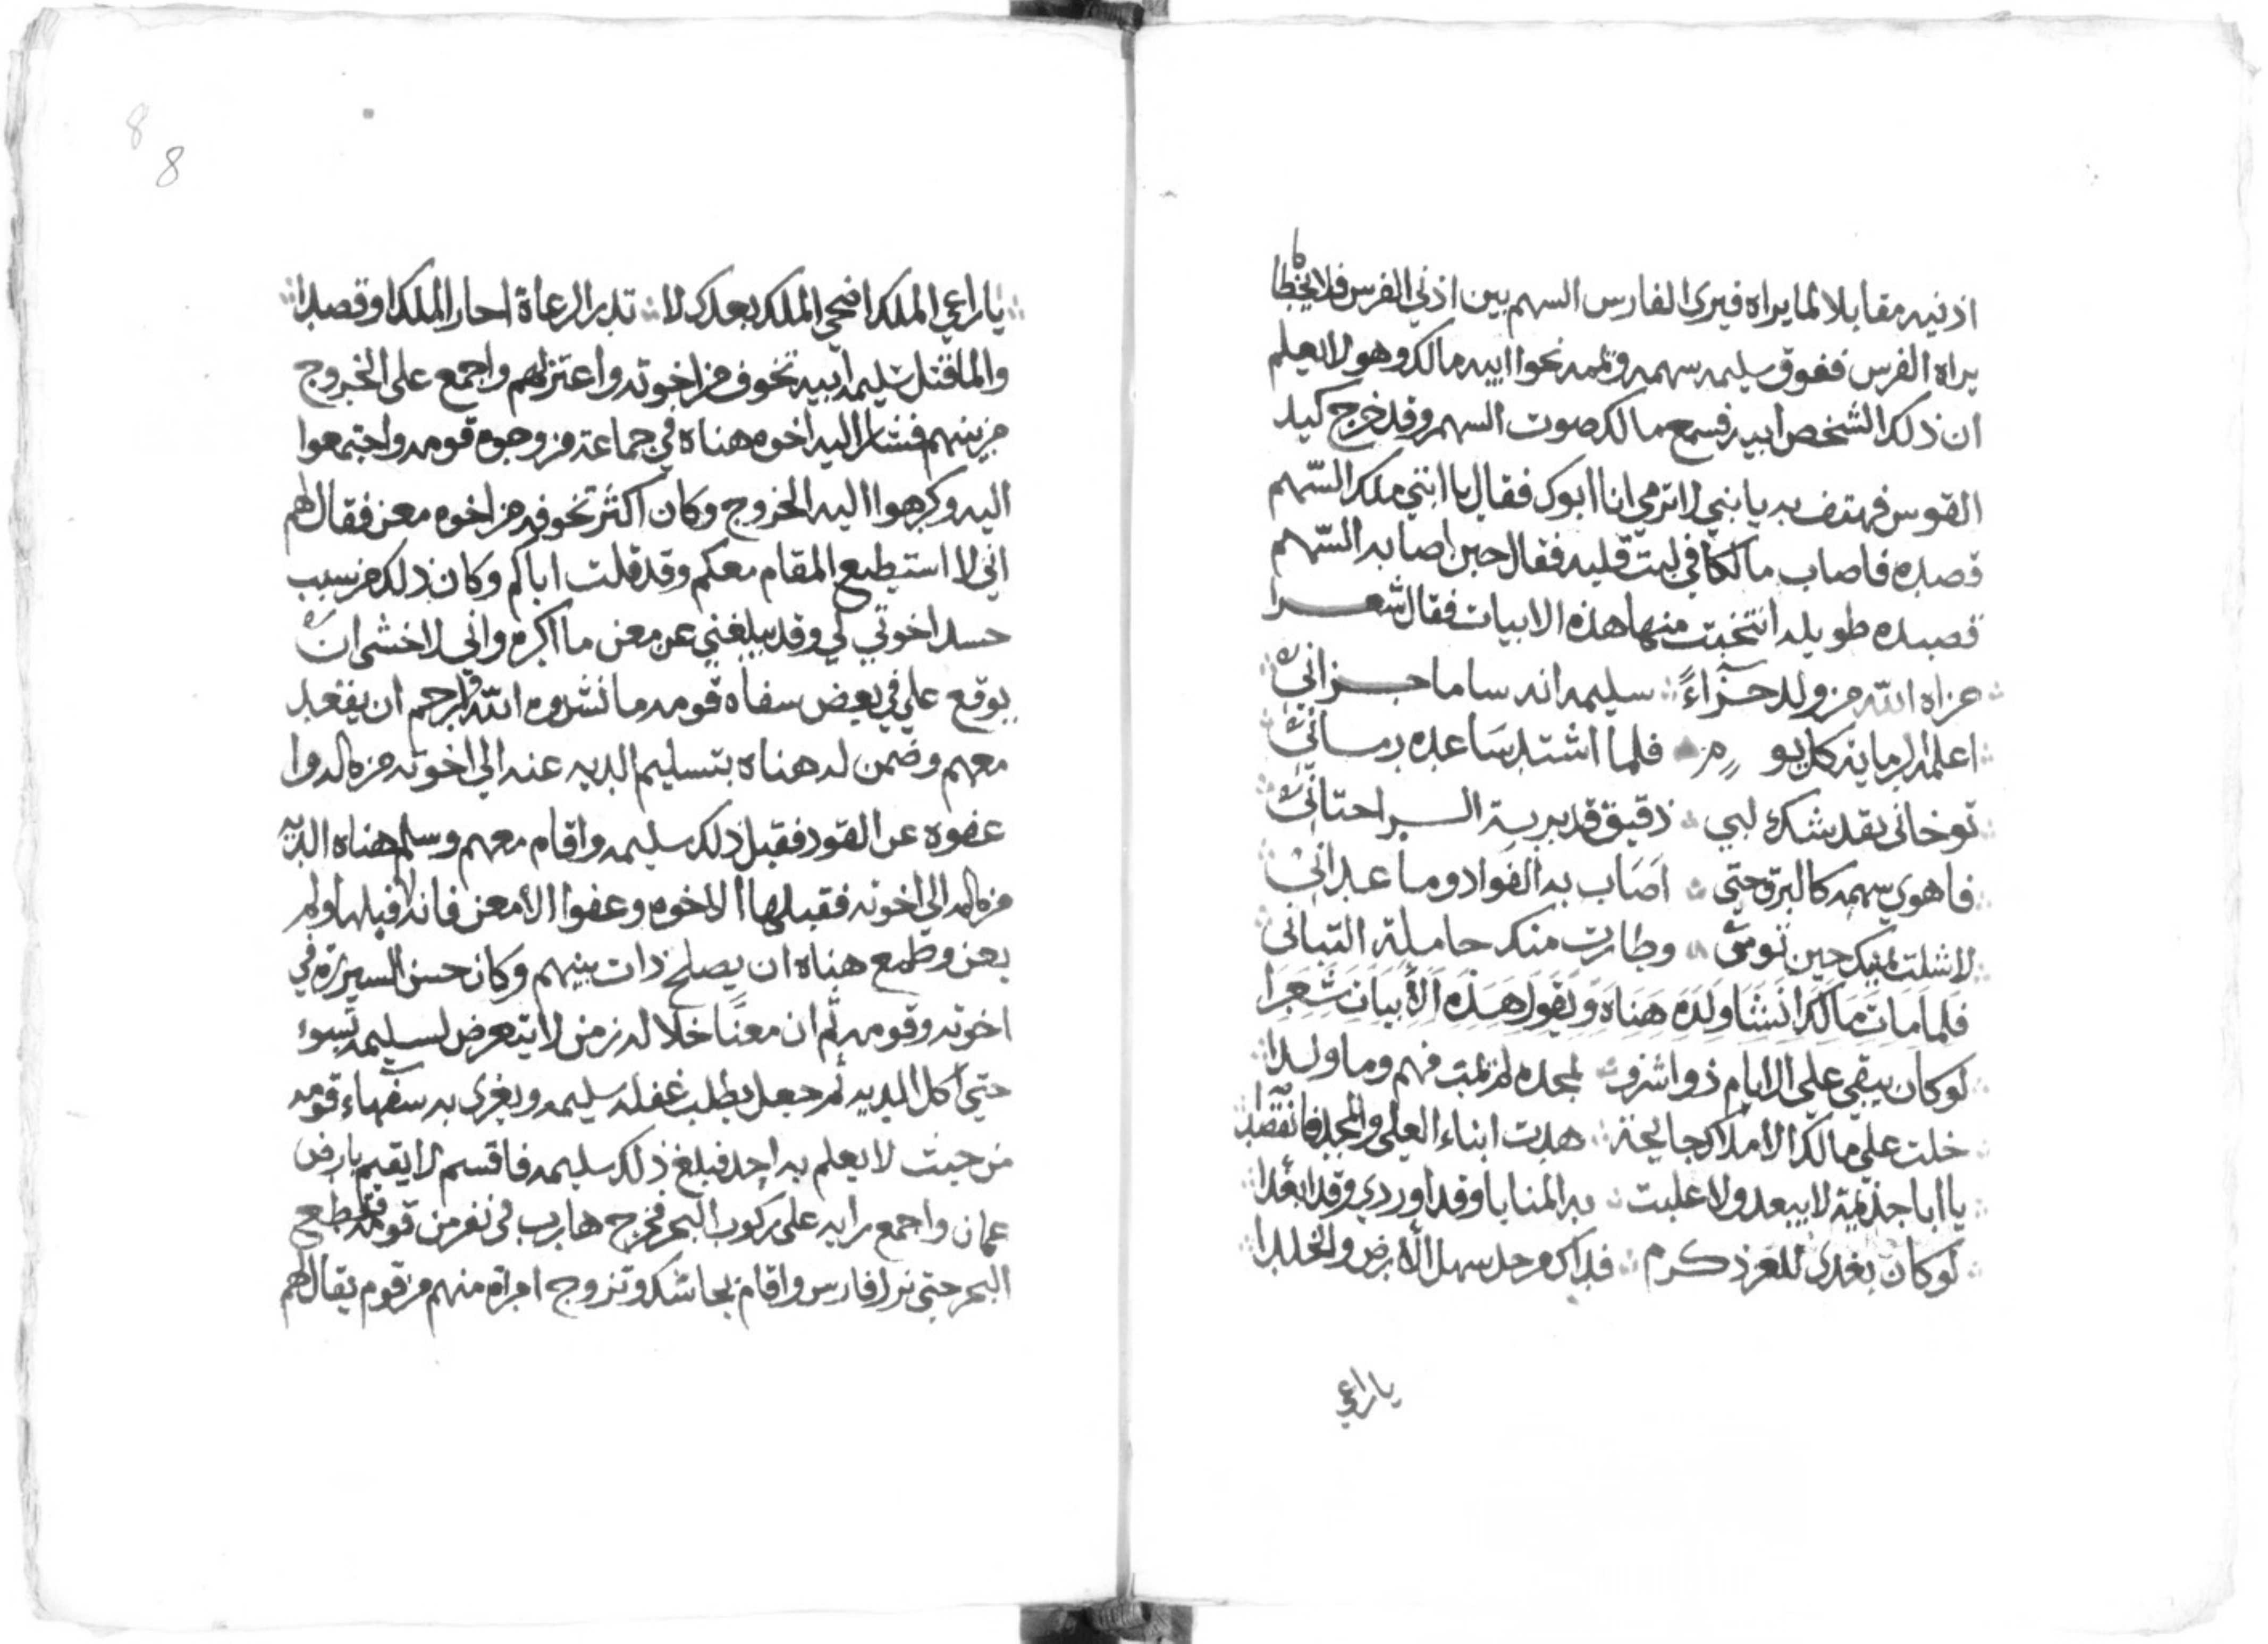 اذنيه مقابلا لما يراه فيرى الفارس السهم بين اذني الفرس فلا يخطا ما
يراه الفرس ففوق سليمه سهمه ويممه نحوا ابيه مالك وهو لا يعلم
ان ذلك الشخص ابيه فسمع مالك صوت السهم وقد خرج كيد
القوس فهتف به يا بني لا ترمي انا ابوك فقال يا ابتي ملك السّهم
قصده فاصاب مالكا في لبت قلبه فقال حين اصابه السّهم
قصيده طويله انتخبت منها هذه الابيات فقال شعرا
جزاه الله من ولد جزآءً سليمه انه ساما جزاني
اعلمه الرمايه كل يوم فلما اشتد ساعده رماني
توخاني بقد شك لبي دقيق قد بريته الراحتاني
فاهوى سهمه كالبرق حتى اصاب به الفواد وما عداني
لا شلت يمينك حين ترمي وطارت منك حاملة البناني
فلما مات مالك انشا ولده هناه ويقول هذه الأبيات شعرا
لو كان يبقى على الايام ذوا شرف لمجده لم يمت فهم وما ولدا
حلت على مالك الاملاك جائحة هدت ابناء العلى والمجد فانقصدا
يا ابا جذيمة لا يبعد ولا غلبت به المنايا وقد اوردي وقد ابعدا
لو كان يفدى للعز ذكرم فداك من حل سهل الأرض والجلدا
يا راعي
8
8
يا راعي الملك اضحى الملك بعدك لا تدر الرعاة احار الملك او قصدا
ولما قتل سليمه ابيه تخوف من اخوته واعتزلهم واجمع على الخروج
من بينهم فسار اليه اخوه هناه في جماعة من وجوه قومه واجتمعوا
اليه وكرهوا اليه الخروج وكان اكثر تخوفه من اخوه معن فقال لهم
اني لا استطيع المقام معكم وقد قلت اباكم وكان ذلك من سبب
حسد اخوتي لي وقد يبلغني عن معن ما اكره واني لاخشى ان
يوقع علي في بعض سفاه قومه ما نشروه الله والرحم ان يفعل
معهم وضمن له هناه بتسليم الديه عنه الى اخوته من ماله وا
عفوه عن القود فقبل ذلك سليمه واقام معهم وسلم هناه الديه
من ماله الى اخوته فقبلها الاخوه وعفوا الا معن فانه لا قبلها ولم
يعف وطمع هناه ان يصلح ذات بينهم وكان حسن السيرة في
اخوته وقومه ثم ان معنًا خلا له زمن لا يتعرض لسليمه بسوء
حتى اكل الديه ثم جعل يطلب غفله سليمه ويغرى به سفهاء قومه
من حيث لا يعلم به احد فبلغ ذلك سليمه فاقسم لا يقيم بارض
عمان واجمع رايه على ركوب البحر فخرج هارب في نفر من قومه فقطع
البحر حتى نزل فارس واقام بجاشك وتزوج امراة منهم من قوم يقال لهم